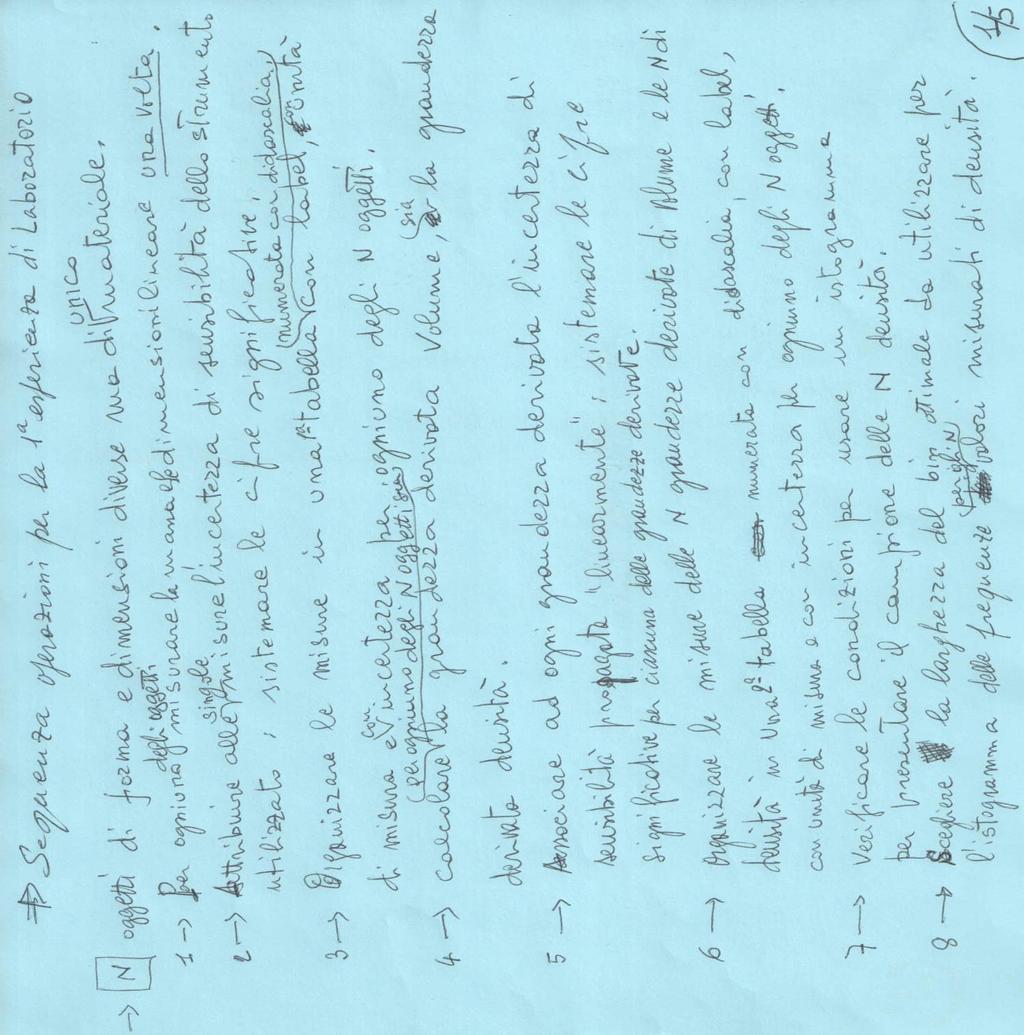 ⇒ Sequenza operazioni per la 1ª esperienza di Laboratorio
→ N oggetti di forma e dimensioni diverse ma di unico materiale.
1 → Per ognuno degli oggetti misurare la dimensioni lineare una volta.
2 → Attribuire alle singole misure l'incertezza di sensibilità dello strumento
utilizzato, sistemare le cifre significative.
3 → Organizzare le misure in una 1ª tabella (numerata con didascalia) con label, con unità
di misura e con incertezza per ognuno degli N oggetti.
4 → calcolare (per ognuno degli N oggetti) sia la grandezza derivata volume, sia la grandezza
derivata densità.
5 → Associare ad ogni grandezza derivata l'incertezza di
sensibilità propagata "linearmente", sistemare le cifre
significative per ciascuna delle grandezze derivate.
6 → Organizzare le misure delle N grandezze derivate di volume e le N di
densità in una 2ª tabella numerata con didascalia, con label,
con unità di misura e con incertezza per ognuno degli N oggetti.
7 → Verificare le condizioni per usare un istogramma
per presentare il campione delle N densità.
8 → Scegliere la larghezza del bin ottimale da utilizzare per
l'istogramma delle frequenze per gli N valori misurati di densità.
1/5